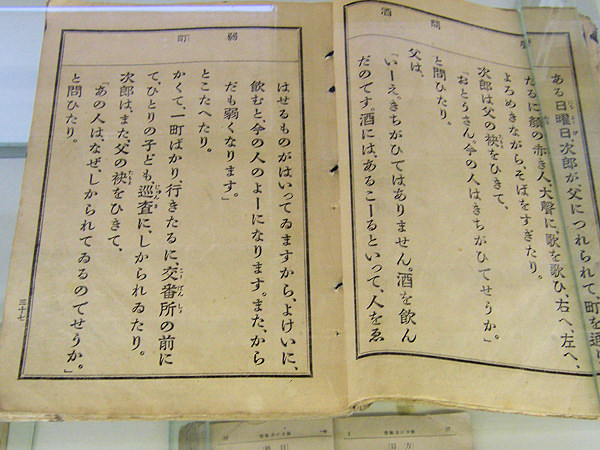 問 酒
ある日曜日、次郎が、父につれられて、町を通り
たるに、顔の赤き人、大聲に歌を歌ひ、右へ、左へ、
よろめきながら、そばをすぎたり。
次郎は父の袂をひきて、
「おとうさん、今の人はきちがひでせうか。」
と問ひたり。
父は、
「いーえ。きちがひではありません。酒を飲ん
だのです。酒には、あるこーるといって、人をゑ
弱 町
はせるものがはいってゐますから、よけいに、
飲むと、今の人のよーになります。また、から
だも弱くなります。」
とこたへたり。
かくて、一町ばかり、行きたるに、交番所の前に
て、ひとりの子ども、巡査に、しかられゐたり。
次郎は、また、父の袂をひきて、
「あの人は、なぜ、しかられてゐるのでせうか。」
と問ひたり。
三十七